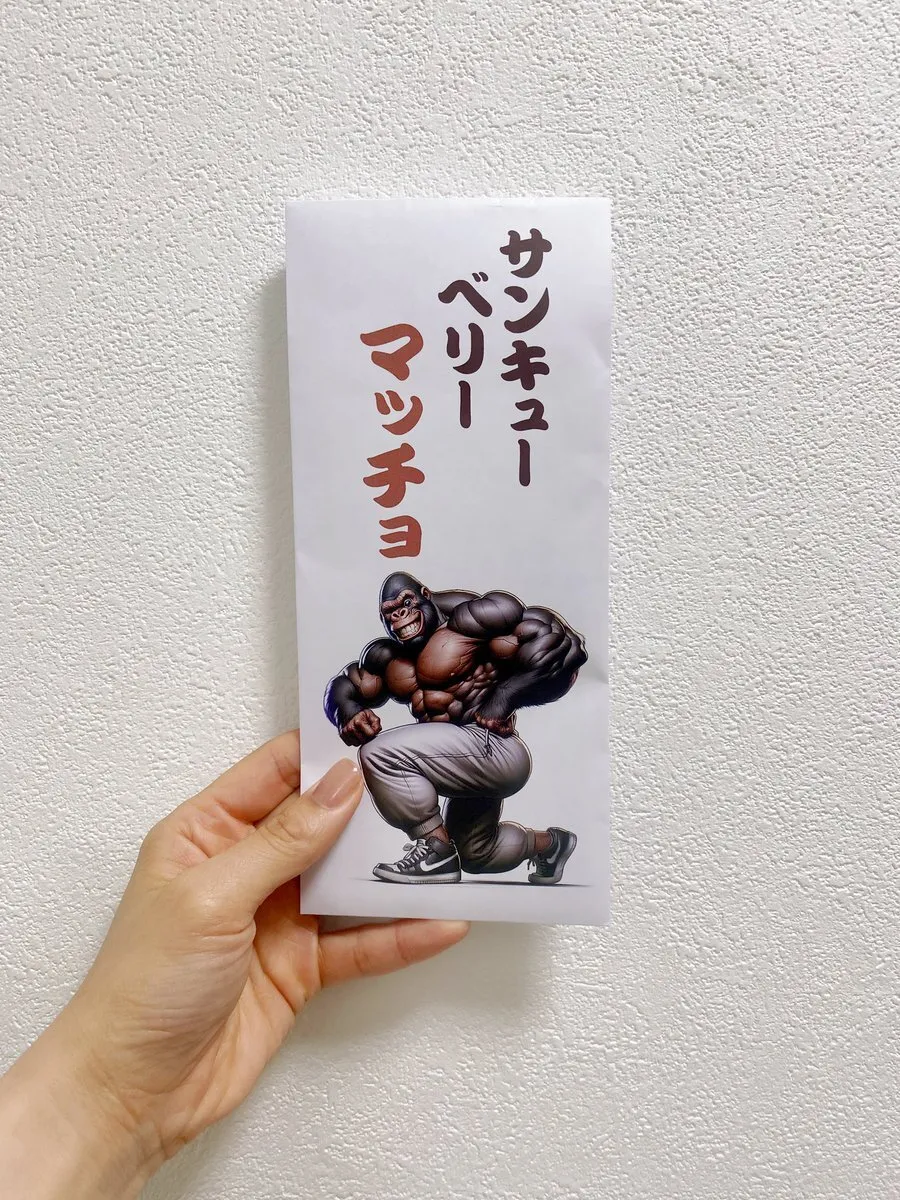 サンキュー
ベリー
マッチョ